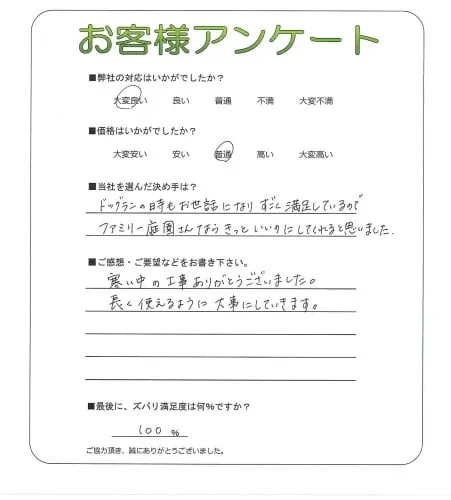 お客様アンケート
■弊社の対応はいかがでしたか？
大変良い 良い 普通 不満 大変不満
■価格はいかがでしたか？
大変安い 安い 普通 高い 大変高い
■当社を選んだ決め手は？
ドッグランの時もお世話になり すごく満足しているので
ファミリー庭園さんならきっといいのにしてくれると思いました.
■ご感想・ご要望などをお書き下さい。
寒い中の工事ありがとうございました。
長く使えるように大事にしていきます。
■最後に、ズバリ満足度は何％ですか？
100 %
ご協力頂き、誠にありがとうございました。